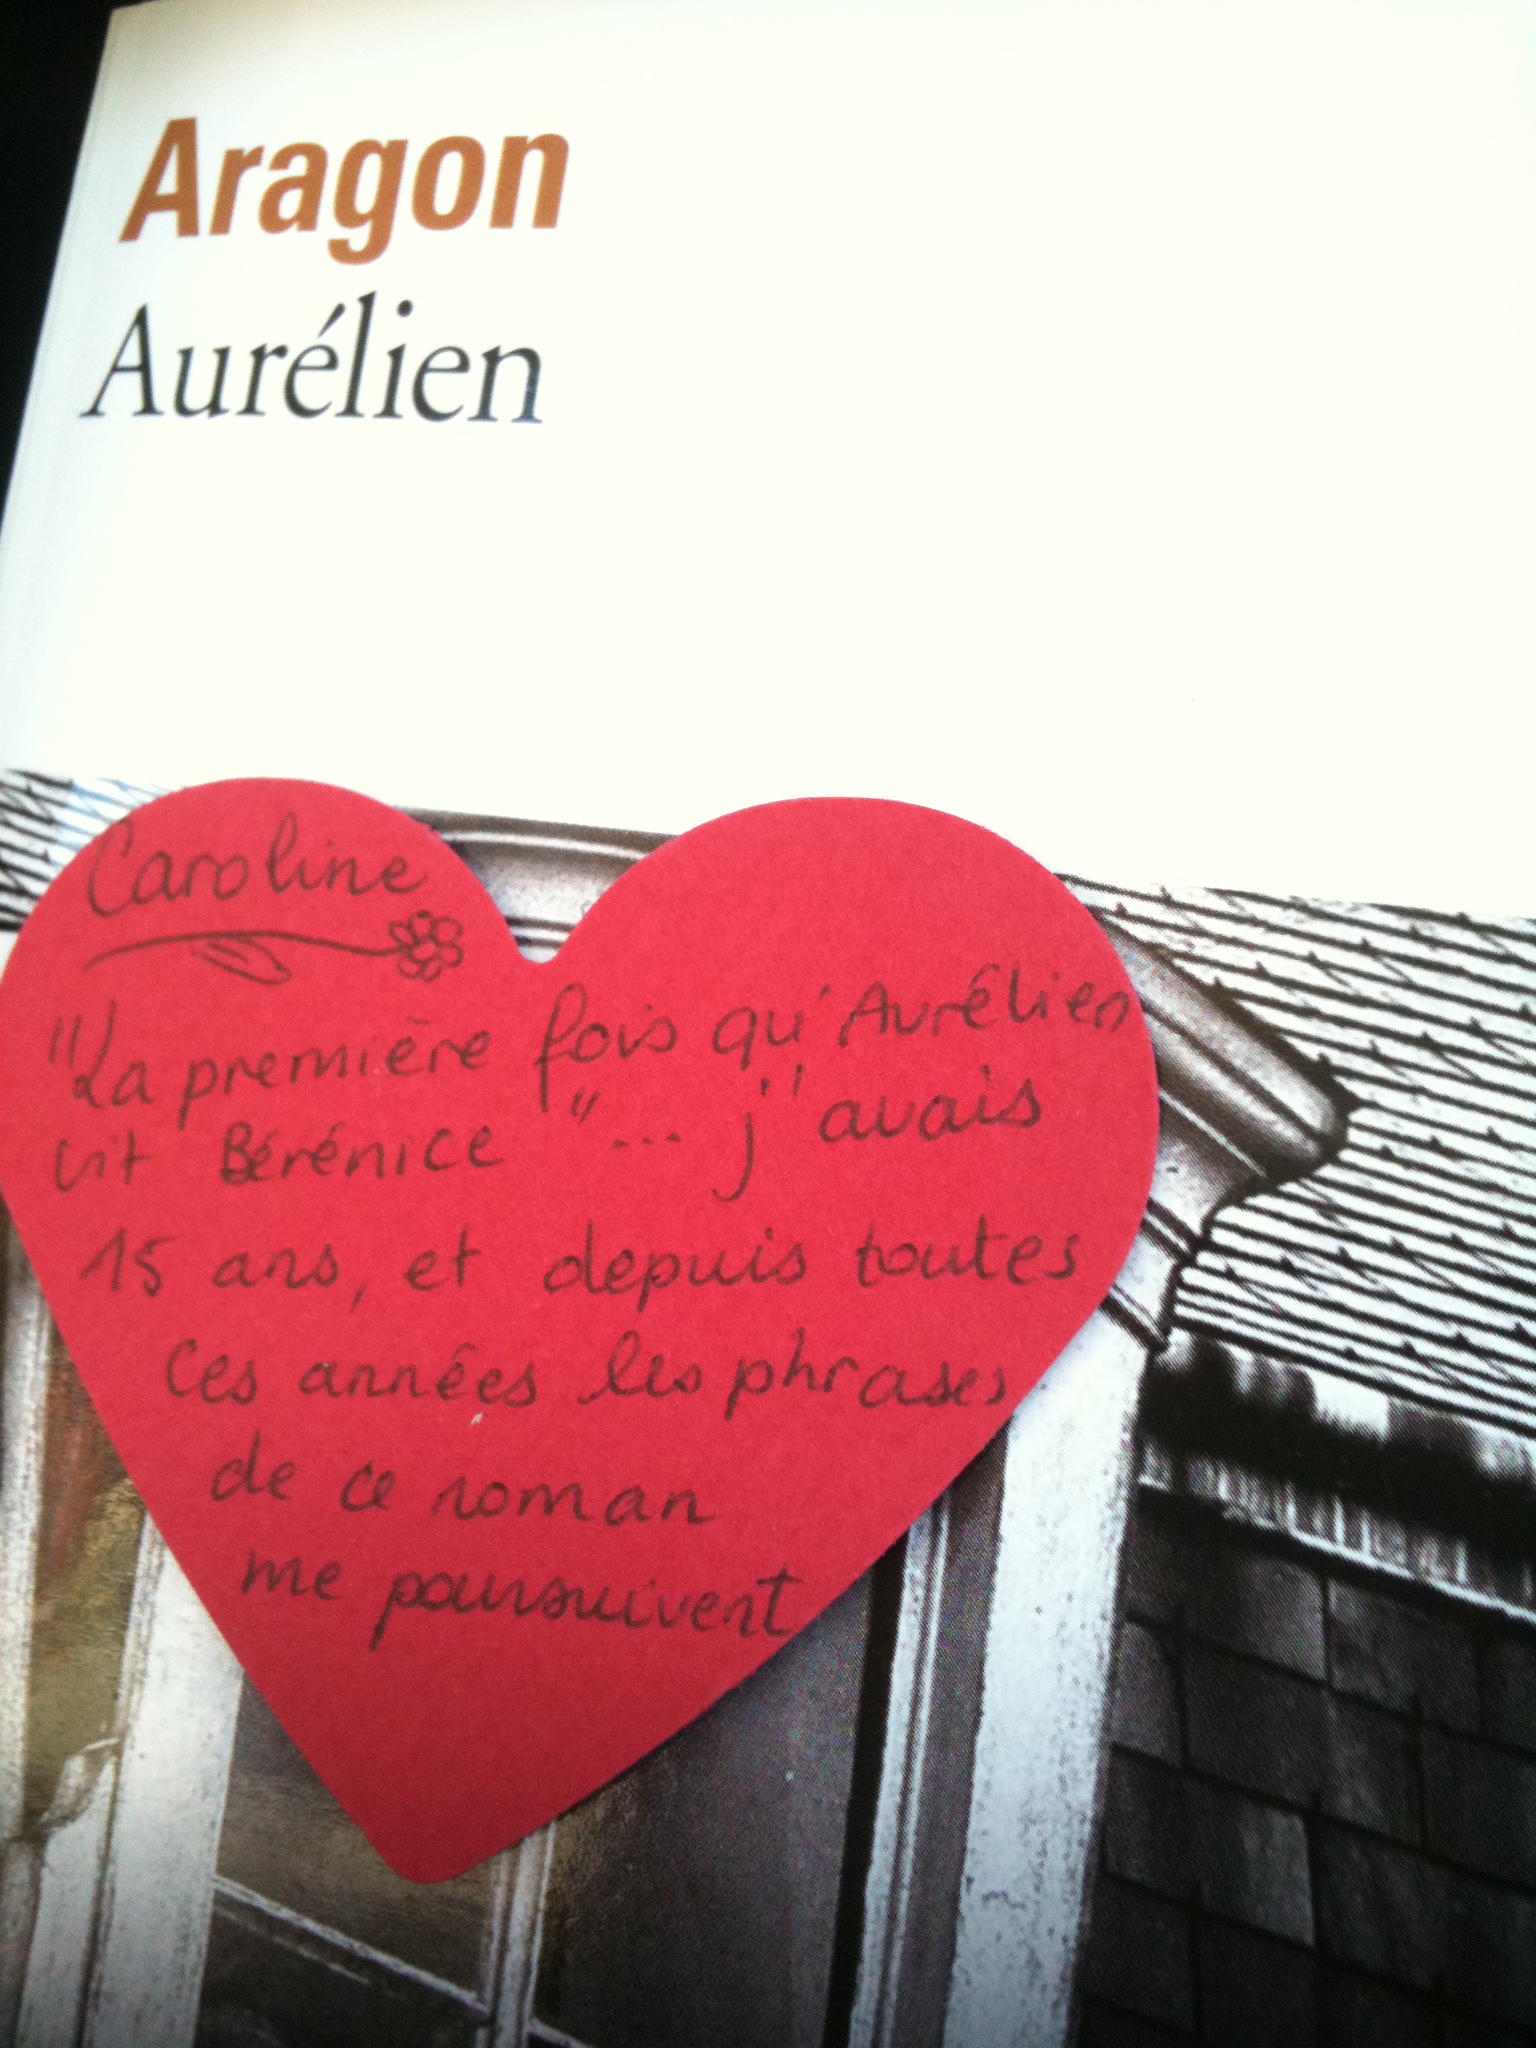 Aragon
Aurélien
Caroline
"La première fois qu'Aurélien
vit Bérénice "... j'avais
15 ans, et depuis toutes
ces années les phrases
de ce roman
me poursuivent